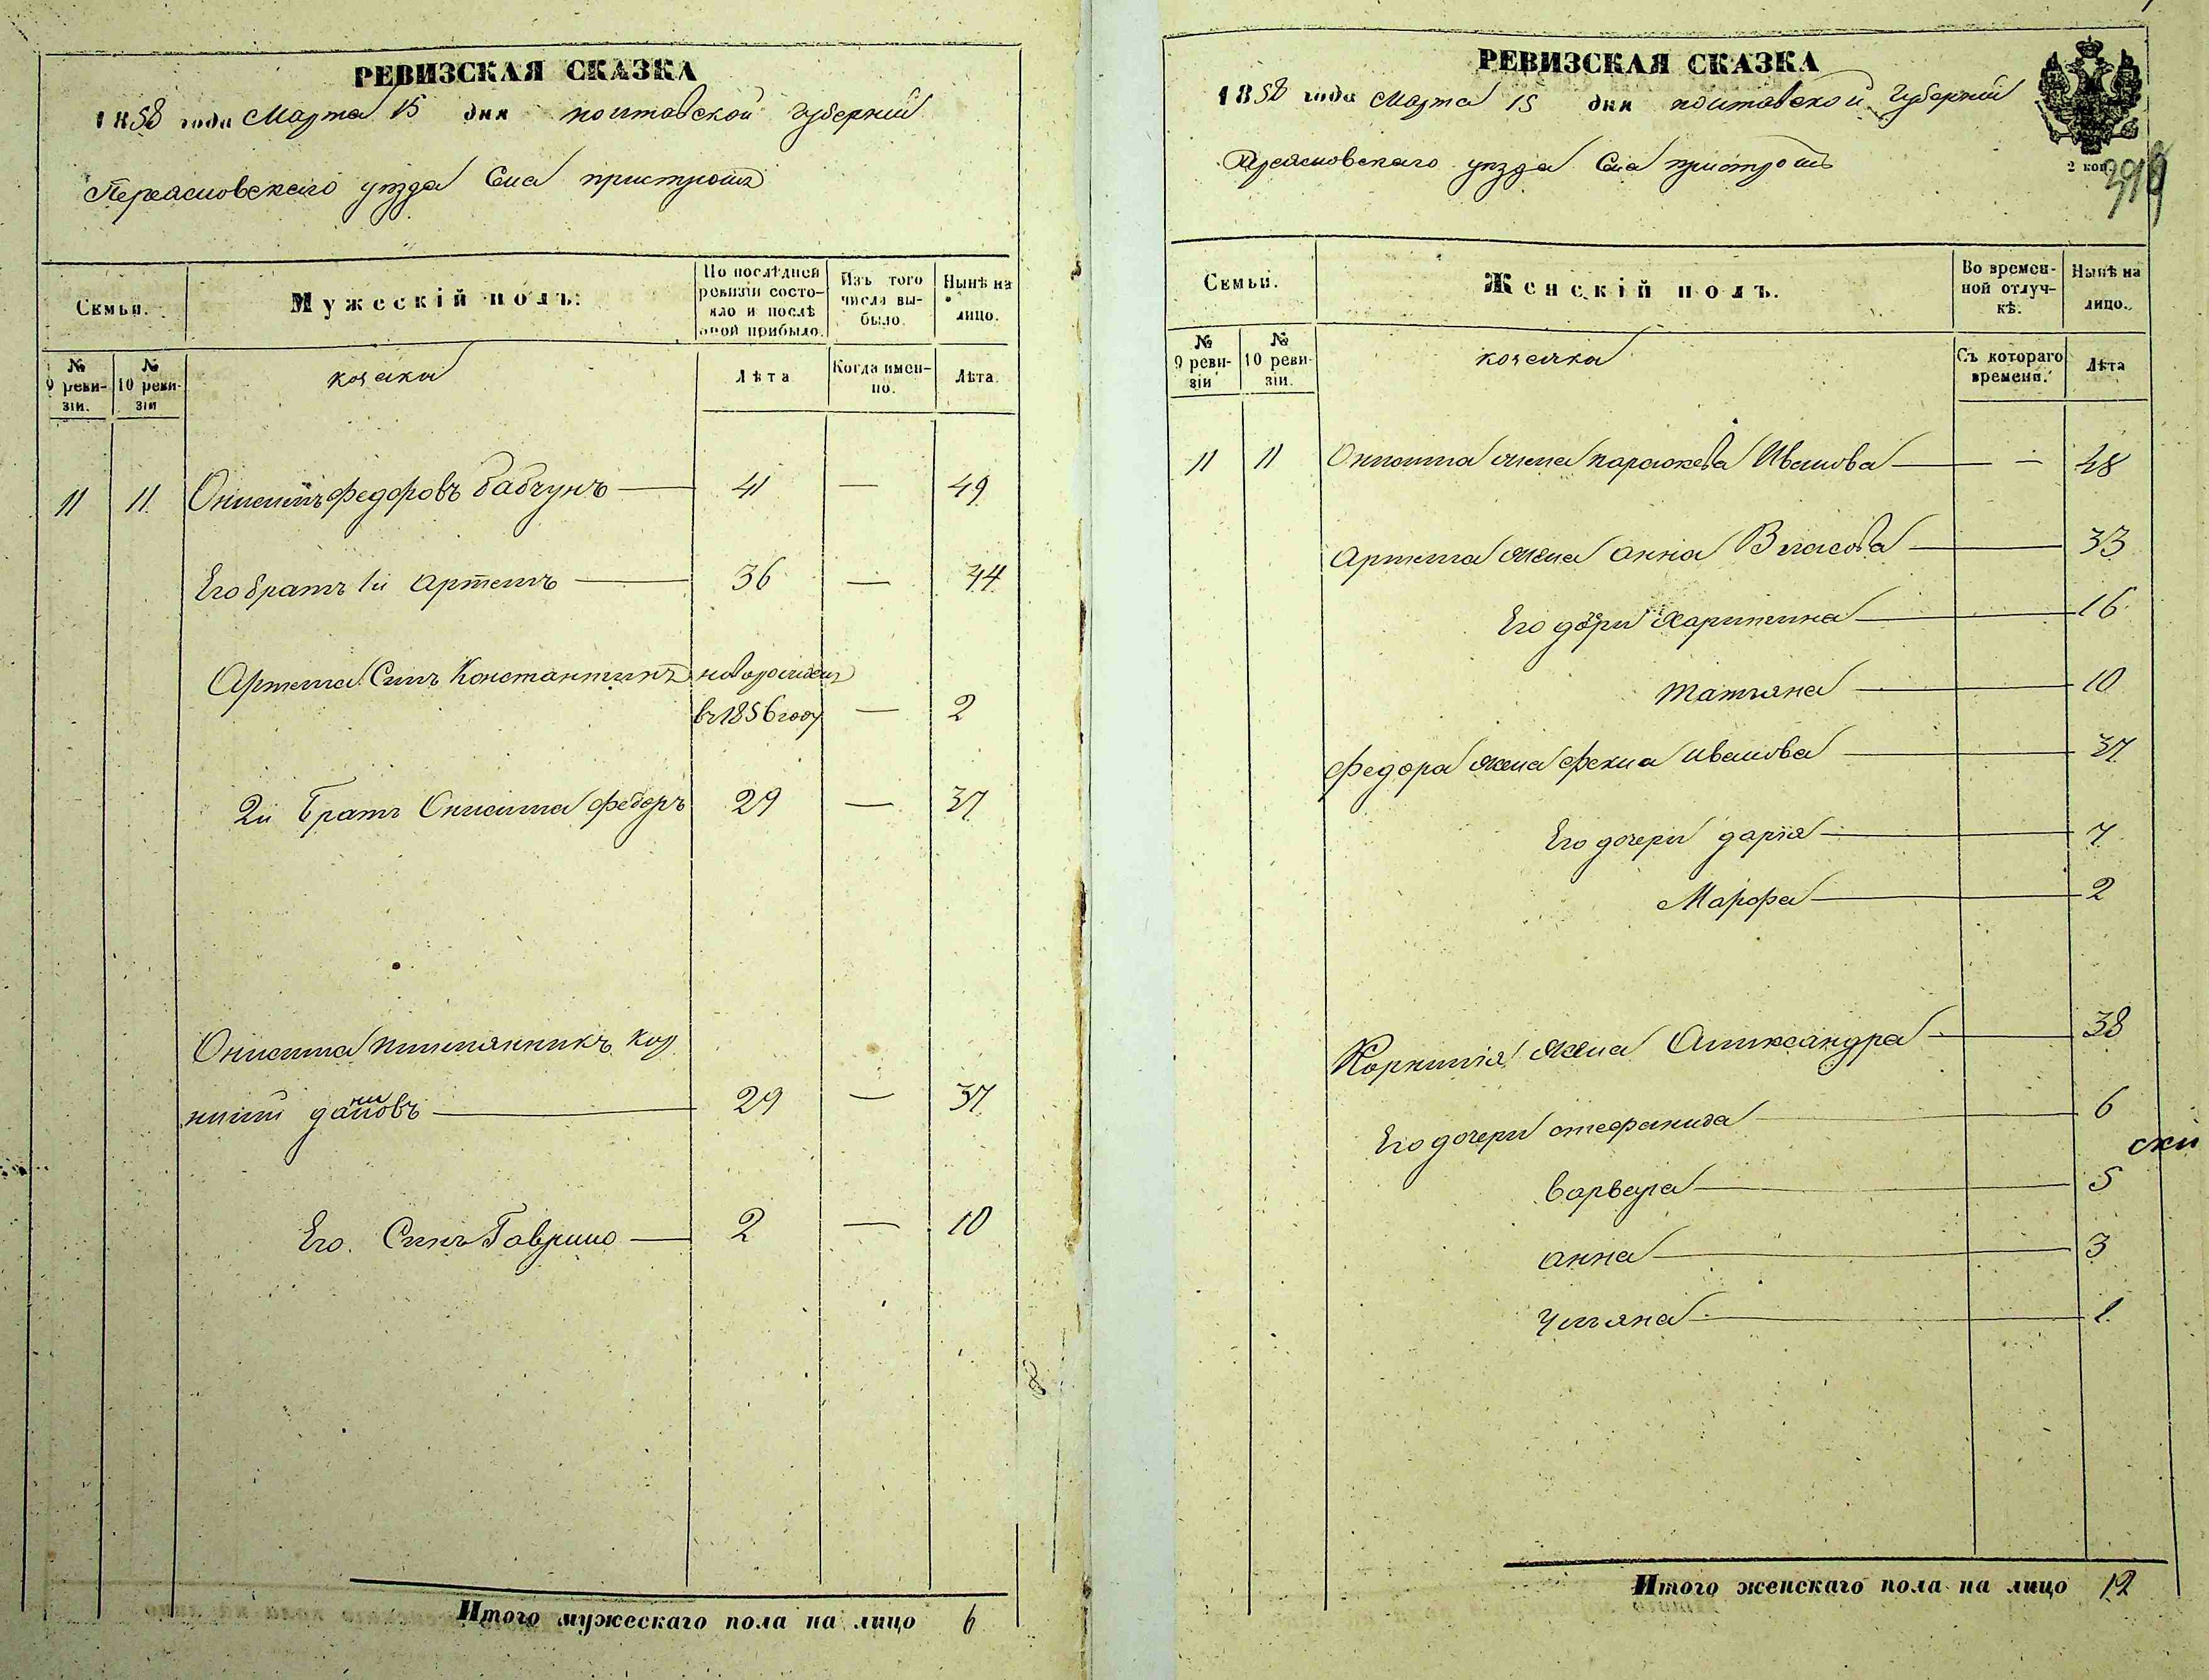 РЕВИЗСКАЯ СКАЗКА
1858 года Марта 15 дня полтавской губернии
Переясловскаго уезда Сла пристромъ
Семьи.
Мужескій полъ:
По послѣдней ревизіи состояло и послѣ оной прибыло.
Изъ того числа выбыло.
Нынѣ на лицо.
№ 9 ревизіи.
№ 10 ревизіи
козаки
Лѣта
Когда именно.
Лѣта.
11 11 Онисимъ федоровъ бабчунъ 41 — 49
Его братъ 1й артемъ 36 — 44
Артема Синъ Константинъ новорожден
въ 1856 году — 2
2й братъ Онисима федоръ 29 — 37
Онисима племянникъ кор
нилий даниловъ 29 — 37
Его Синъ Гаврило 2 — 10
Итого мужескаго пола на лицо 6
РЕВИЗСКАЯ СКАЗКА
1858 года Марта 15 дня полтавской Губернии
Переясловскаго уезда Сла пристромъ
2 коп.
Семьи.
Женскій полъ.
Во временной отлучкѣ.
Нынѣ на лицо.
№ 9 ревизіи
№ 10 ревизіи.
козачки
Съ котораго времени.
Лѣта
11 11 Онисима жена параскева Иванова — 48
Артема жена анна Власова 33
Его дочери Харитина 16
татияна 10
федора жена фекла иванова 37
Его дочери дария 7
Марфа 2
Корнилия жена Александра 38
Его дочери стефанида 6
ски
варвара 5
анна 3
Улияна 1
Итого женскаго пола на лицо 12